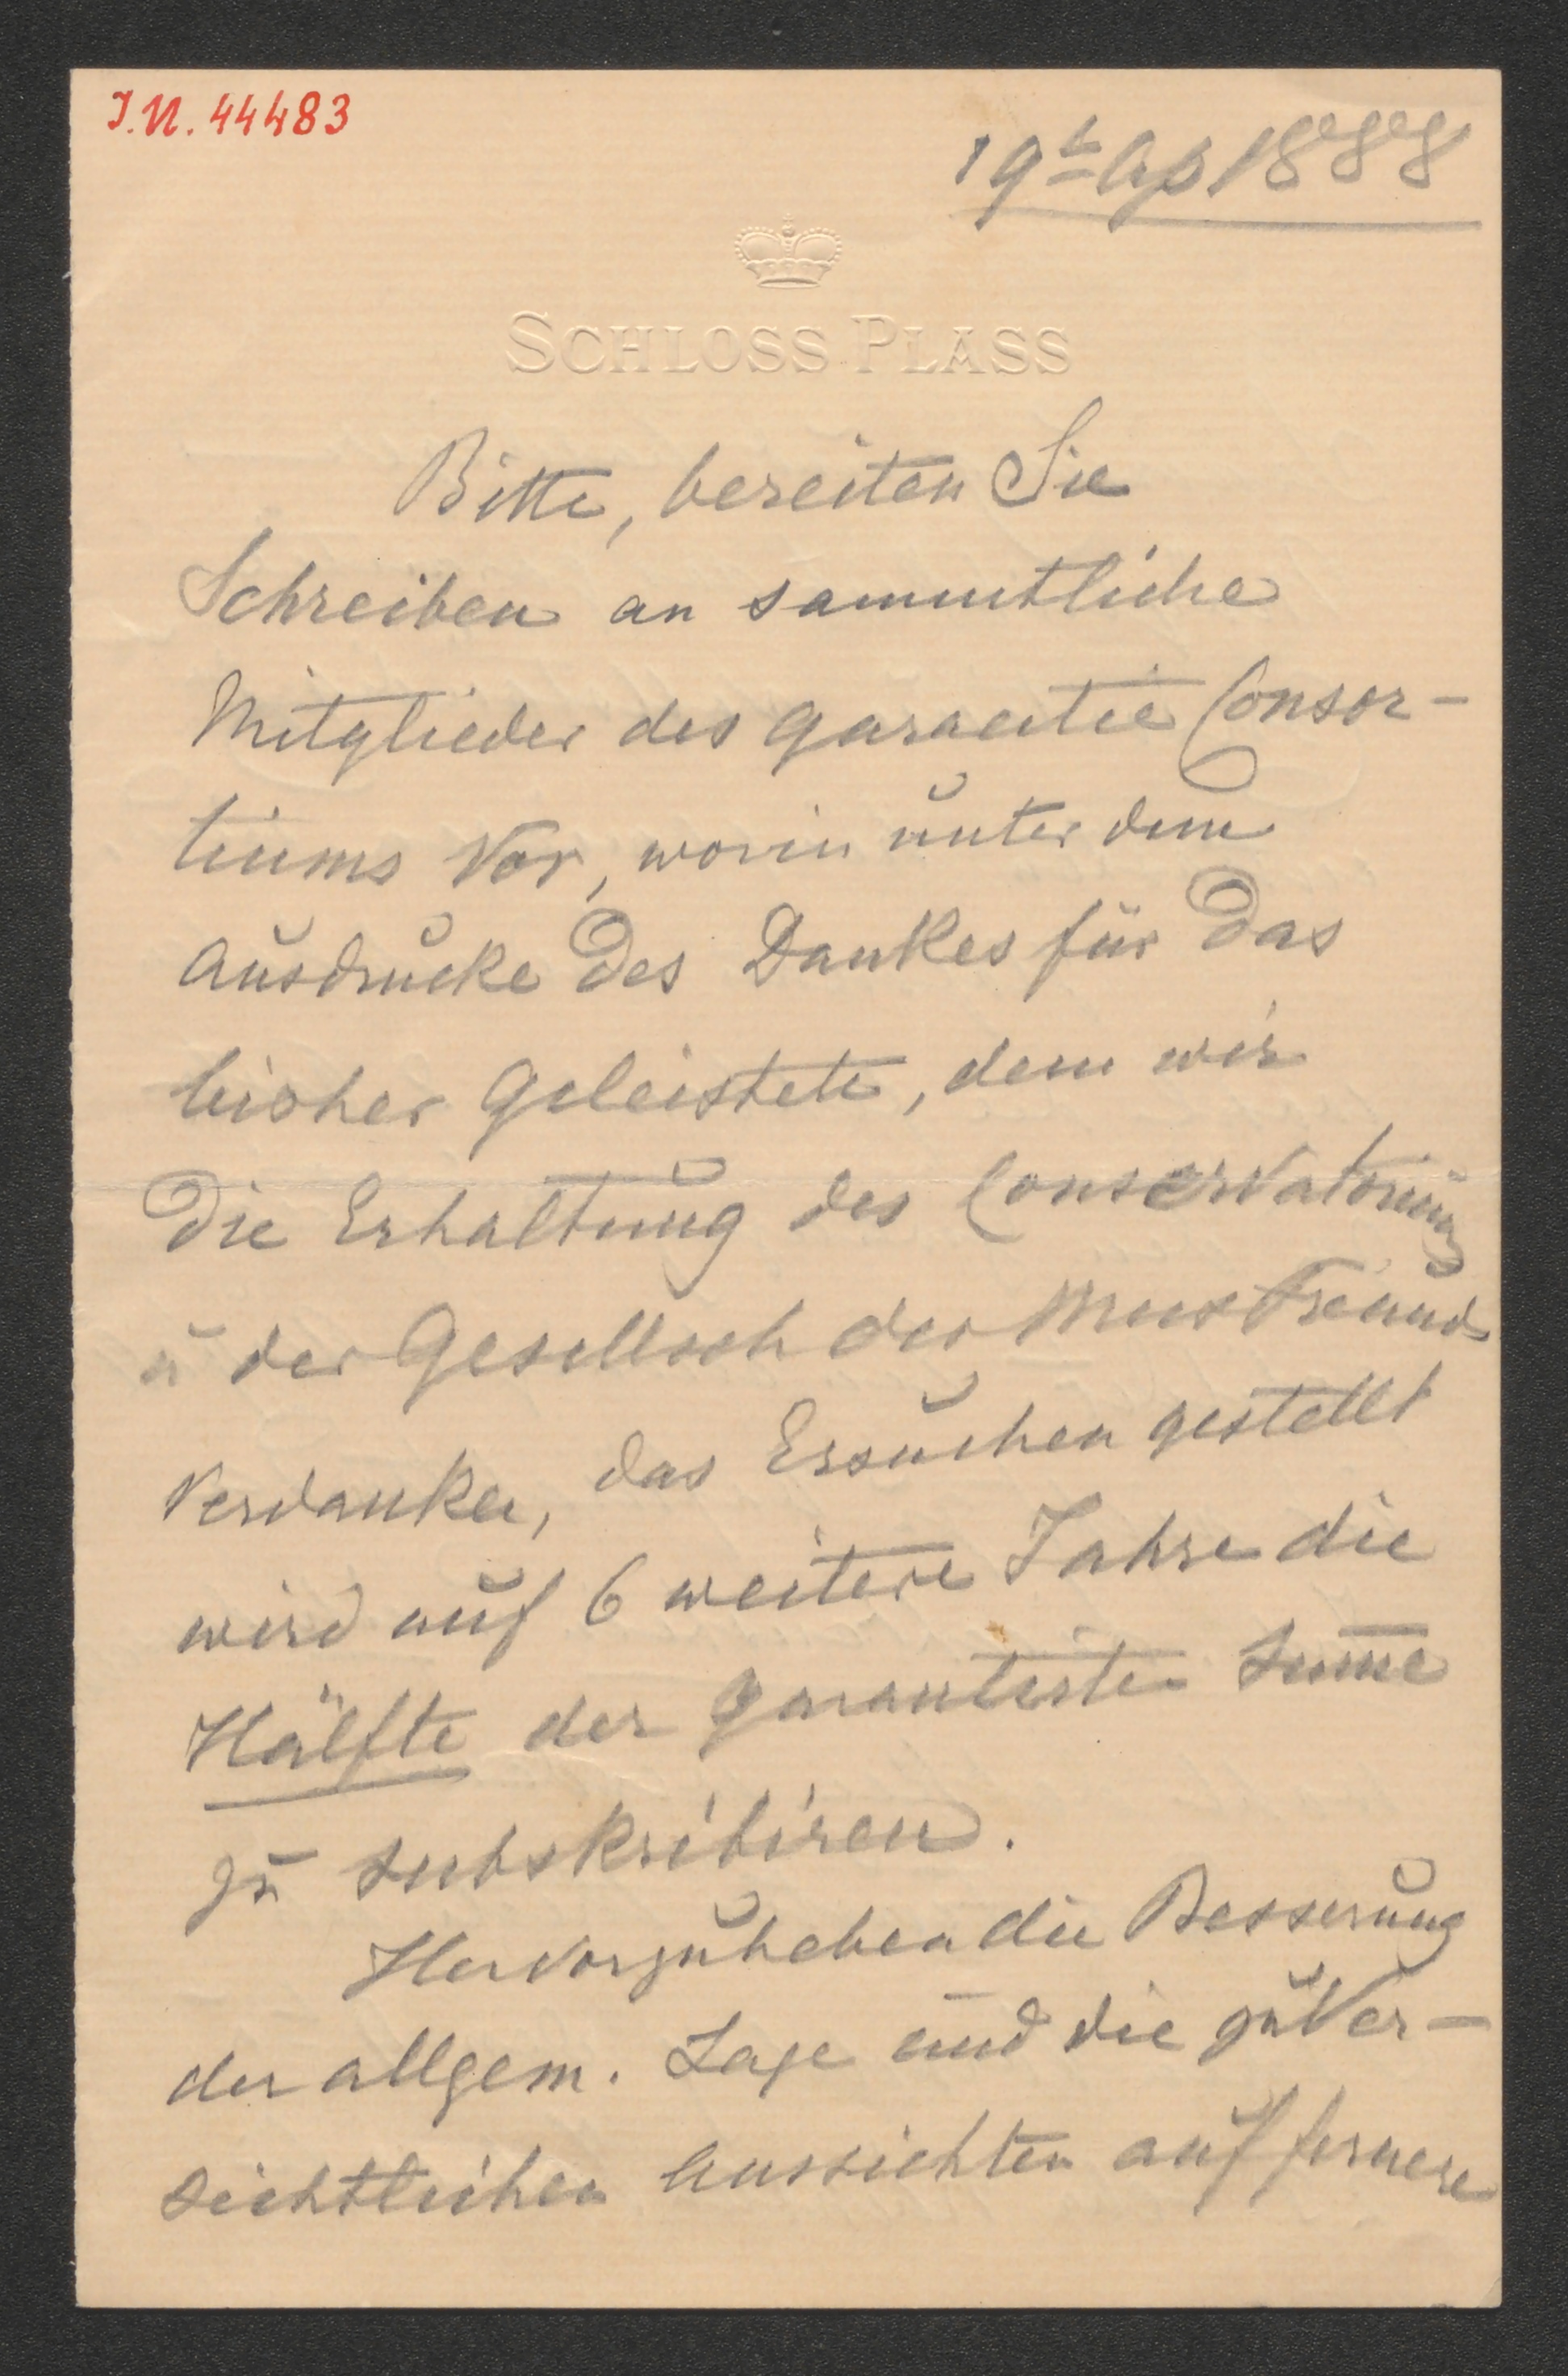 I.N. 44483
19t Ap 1888
SCHLOSS PLASS
Bitte, bereiten Sie
Schreiben an sammtliche
Mitglieder des Garantie Consor-
tiums vor, worin unter dem
Ausdrucke des Dankes für das
bisher Geleistete, dem wir
die Erhaltung des Conservatoriums
u der Gesellsch der MusFreunde
verdanken, das Ersuchen gestellt
wird auf 6 weitere Jahre die
Hälfte der garantirten Sum̅e
zu subskribiren.
Hervorzuheben die Besserung
der allgem. Lage und die zuver-
sichtlichen Aussichten auf fernere